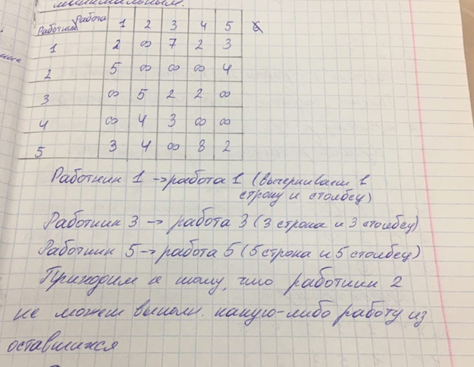 минимальным.
Работник Работа 1 2 3 4 5
1 2 ∞ 7 2 3
2 5 ∞ ∞ ∞ 4
3 ∞ 5 2 2 ∞
4 ∞ 4 3 ∞ ∞
5 3 4 ∞ 8 2
Работник 1 → работа 1 (вычеркиваем 1
строку и столбец)
Работник 3 → работа 3 (3 строка и 3 столбец)
Работник 5 → работа 5 (5 строка и 5 столбец)
Приходим к тому, что работник 2
не может выполн. какую-либо работу из
оставшихся